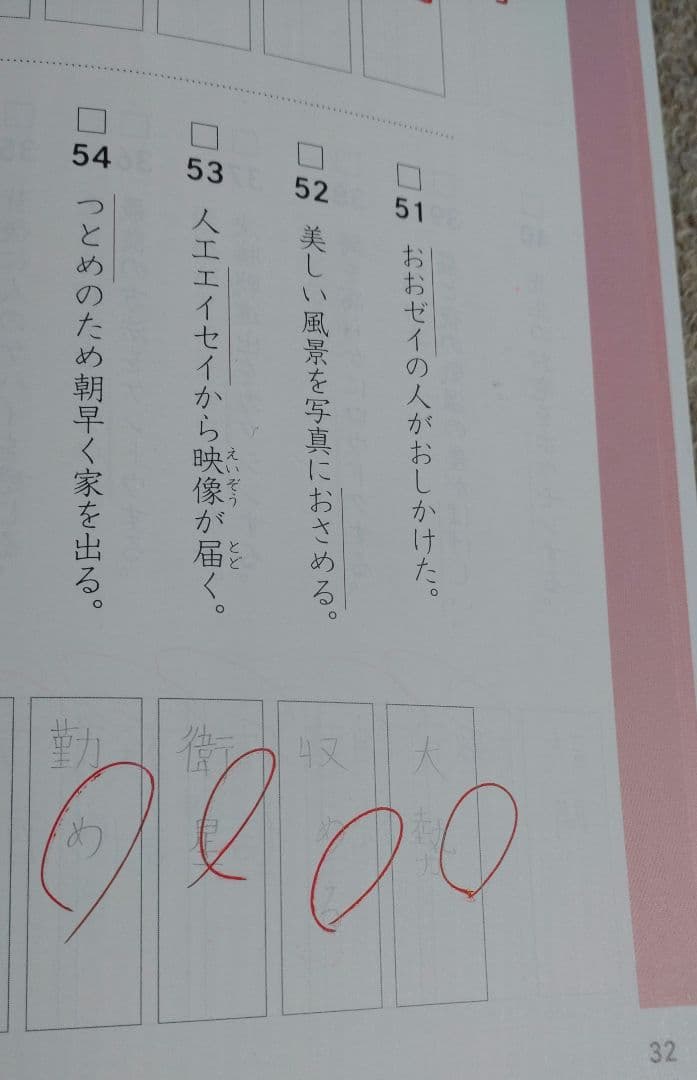 51 おおゼイの人がおしかけた。
大勢
52 美しい風景を写真におさめる。
収める
53 人工エイセイから映像が届く。
えいぞう
とど
衛星
54 つとめのため朝早く家を出る。
勤め
32